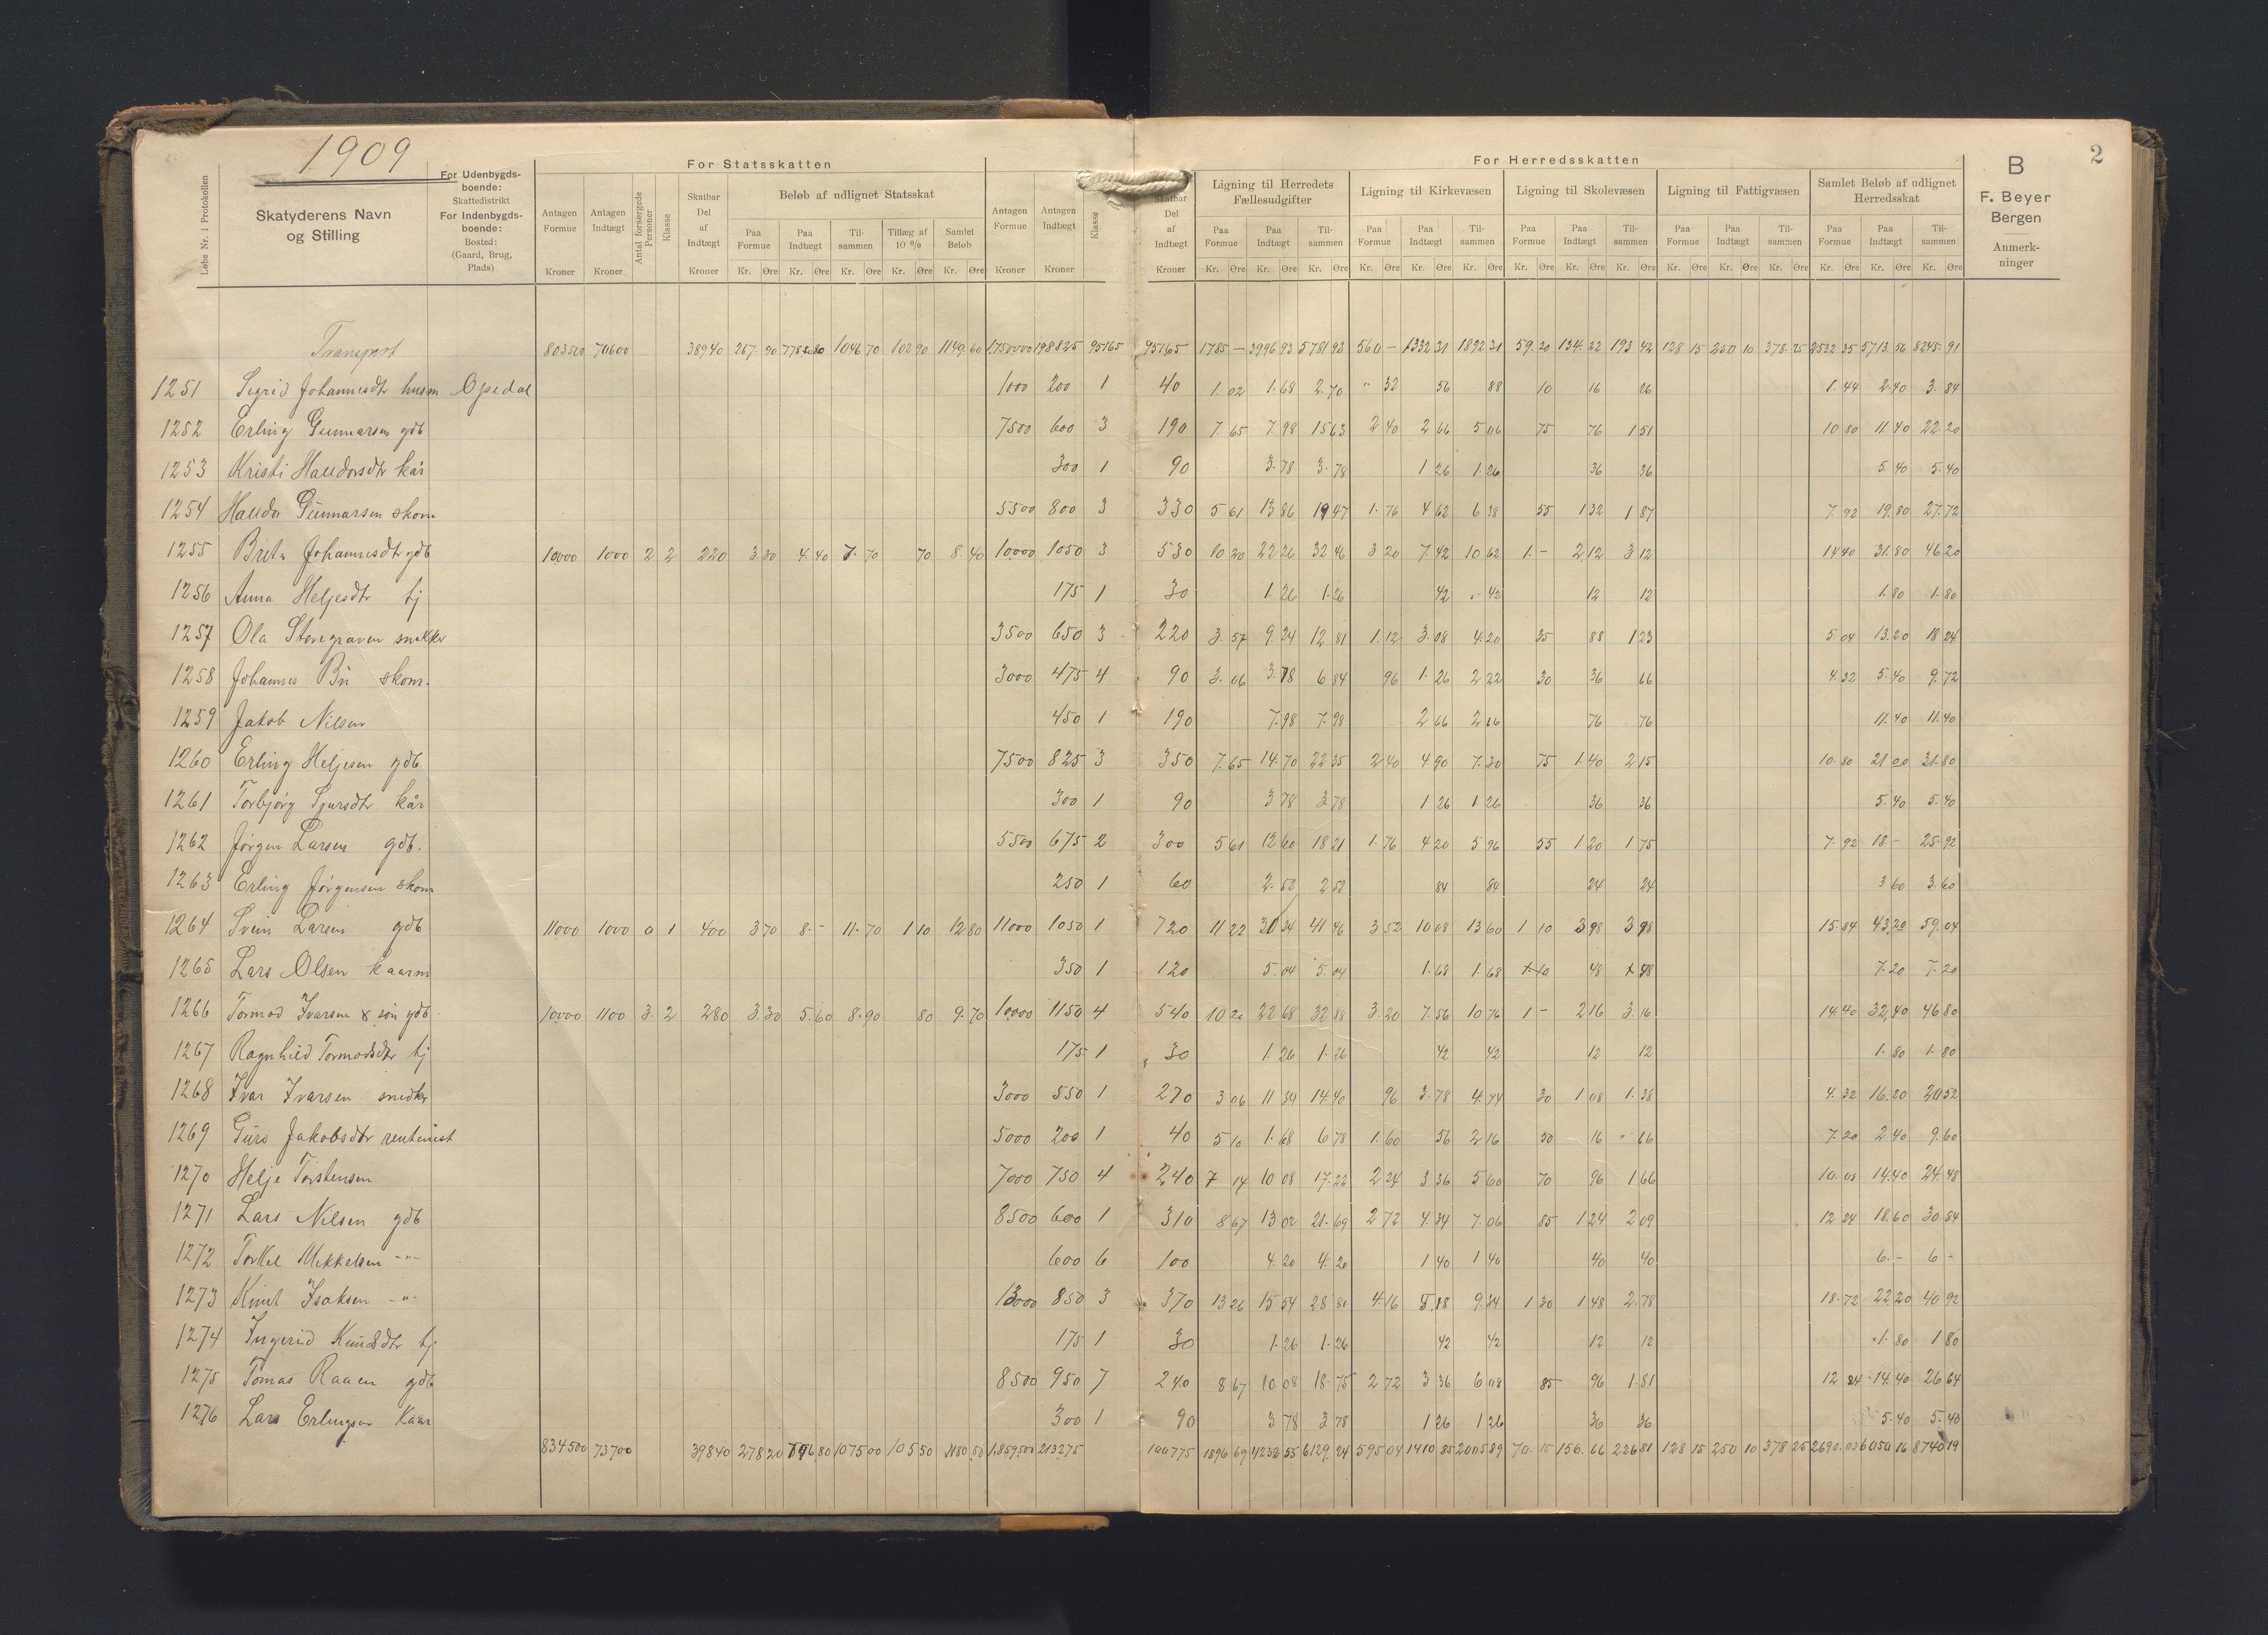 1909
2
For Statsskatten
For Herredsskatten
B
F. Beyer
Bergen
Anmerk-
ninger
Løbe Nr. i Protokollen
Skatyderens Navn
og Stilling
For Udenbygds-
boende:
Skattedistrikt
For Indenbygds-
boende:
Bosted:
(Gaard, Brug,
Plads)
Antagen Formue Kroner
Antagen Indtægt Kroner
Antal forsørgede Personer
Klasse
Skatbar Del af Indtægt Kroner
Beløb af udlignet Statsskat
Paa Formue Kr. Øre
Paa Indtægt Kr. Øre
Til-sammen Kr. Øre
Tillæg af 10 % Kr. Øre
Samlet Beløb Kr. Øre
Antagen Formue Kroner
Antagen Indtægt Kroner
Klasse
Skatbar Del af Indtægt Kroner
Ligning til Herredets Fællesudgifter
Paa Formue Kr. Øre Paa Indtægt Kr. Øre Til-sammen Kr. Øre
Ligning til Kirkevæsen
Paa Formue Kr. Øre Paa Indtægt Kr. Øre Til-sammen Kr. Øre
Ligning til Skolevæsen
Paa Formue Kr. Øre Paa Indtægt Kr. Øre Til-sammen Kr. Øre
Ligning til Fattigvæsen
Paa Formue Kr. Øre Paa Indtægt Kr. Øre Til-sammen Kr. Øre
Samlet Beløb af udlignet Herredsskat
Paa Formue Kr. Øre Paa Indtægt Kr. Øre Til-sammen Kr. Øre
Transport 803500 70600 38940 267.90 778.80 1046 70 102 90 1149.60 1750000 198825 95165 95165 1785 - 3996 93 5781 93 560 - 1332 31 1892 31 59.20 134.22 193 42 128 15 250 10 378.25 2532 35 5713.56 8245.91
1251 Sigrid Johannesdtr husm Opedal 1000 200 1 40 1.02 1.68 2.70 " 32 56 88 10 16 26 1.44 2.40 3.84
1252 Erling Gunnarsen gdb 7500 600 3 190 7.65 7.98 15 63 2 40 2 66 5 06 75 76 1 51 10 80 11.40 22.20
1253 Kristi Halldorsdtr kår 300 1 90 3.78 3.78 1 26 1.26 36 36 5.40 5.40
1254 Halldor Gunnarsen skom 5500 800 3 330 5 61 13 86 19 47 1.76 4 62 6 38 55 1 32 1 87 7.92 19.80 27.72
1255 Brita Johannesdtr gdb 10000 1000 2 2 220 3.30 4.40 7.70 70 8.40 10000 1050 3 530 10 20 22 26 32 46 3 20 7.42 10 62 1.- 2.12 3 12 14 40 31.80 46 20
1256 Anna Heljesdtr tj 175 1 30 1.26 1.26 42 42 12 12 1.80 1.80
1257 Ola Storegraven snekker 3500 650 3 220 3.57 9 24 12 81 1.12 3.08 4.20 35 88 1 23 5 04 13.20 18 24
1258 Johannes Bu skom. 3000 475 4 90 3.06 3.78 6 84 96 1.26 2 22 30 36 66 4.32 5.40 9.72
1259 Jakob Nilsen 450 1 190 7.98 7.98 2 66 2 66 76 76 11.40 11.40
1260 Erling Heljesen gdb. 7500 825 3 350 7.65 14.70 22 35 2 40 4 90 7.30 75 1.40 2 15 10.80 21 00 31.80
1261 Torbjørg Sjursdtr kår 300 1 90 3 78 3.78 1 26 1.26 36 36 5.40 5.40
1262 Jørgen Larsen gdb. 5500 675 2 300 5 61 12 60 18 21 1.76 4 20 5 96 55 1 20 1 75 7.92 18 - 25.92
1263 Erling Jørgensen skom 250 1 60 2.52 2 52 84 84 24 24 3 60 3.60
1264 Svein Larsen gdb 11000 1000 0 1 400 3 70 8.- 11.70 1 10 12 80 11000 1050 1 720 11 22 30 24 41 46 3 52 10 08 13 60 1 10 3 98 15.84 43.20 59.04
1265 Lars Olsen kaarm 350 1 120 5.04 5.04 1.68 1.68 48 48 7.20 7.20
1266 Tormod Ivarsen & søn gdb 10000 1100 3 2 280 3.30 5.60 8.90 80 9.70 10000 1150 4 540 10 20 22 68 32 88 3.20 7.56 10 76 1 - 2 16 3.16 14.40 32.40 46 80
1267 Ragnhild Tormodsdtr tj 175 1 30 1.26 1.26 42 42 12 12 1.80 1.80
1268 Ivar Ivarsen snedker 3000 550 1 270 3 06 11 34 14.40 96 3.78 4.74 30 1 08 1.38 4.32 16.20 20 52
1269 Guro Jakobsdtr rentenist 5000 200 1 40 5 10 1.68 6 78 1.60 56 2 16 50 16 66 7.20 2 40 9.60
1270 Helje Torstensen 7000 750 4 240 7 14 10 08 17.22 2 24 3 36 5 60 70 96 1 66 10.08 14.40 24.48
1271 Lars Nilsen gdb 8500 600 1 310 8 67 13 02 21.69 2 72 4.34 7.06 85 1 24 2 09 12 24 18.60 30 84
1272 Torkel Mikkelsen -"- 600 6 100 4.20 4.20 1 40 1 40 40 40 6.- 6 -
1273 Knut Isaksen -"- 13000 850 3 370 13 26 15 54 28 80 4.16 5.18 9.34 1 30 1 48 2.78 18.72 22 20 40 92
1274 Ingerid Knudsdtr tj 175 1 30 1.26 1.26 42 42 12 12 1.80 1 80
1275 Tomas Raaen gdb 8500 950 7 240 8 67 10 08 18.75 2 72 3 36 6 08 85 96 1.81 12 24 14.40 26 64
1276 Lars Erlingsen Kaar 300 1 90 3 78 3 78 1 26 1 26 36 36 5.40 5.40
834500 73700 39840 278 20 796 80 1075 00 105 50 1180.50 1,859,500 213275 100775 1896 69 4232 55 6129.24 595 04 1410 85 2005 89 70.15 156.66 226 81 128 15 250 10 378 25 2690.03 6050 16 8740 19